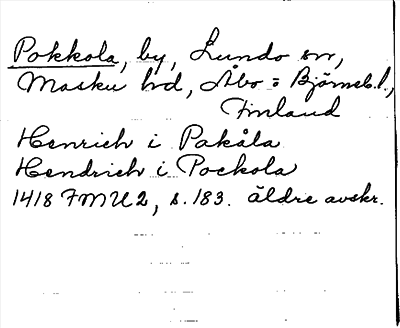 Pokkola, by, Lundo sn,
Masku hd, Åbo = Björneb. l.,
Finland
Henrich i Pakåla
Hendrich i Pockola
1418 FMU 2, s. 183. äldre avskr.